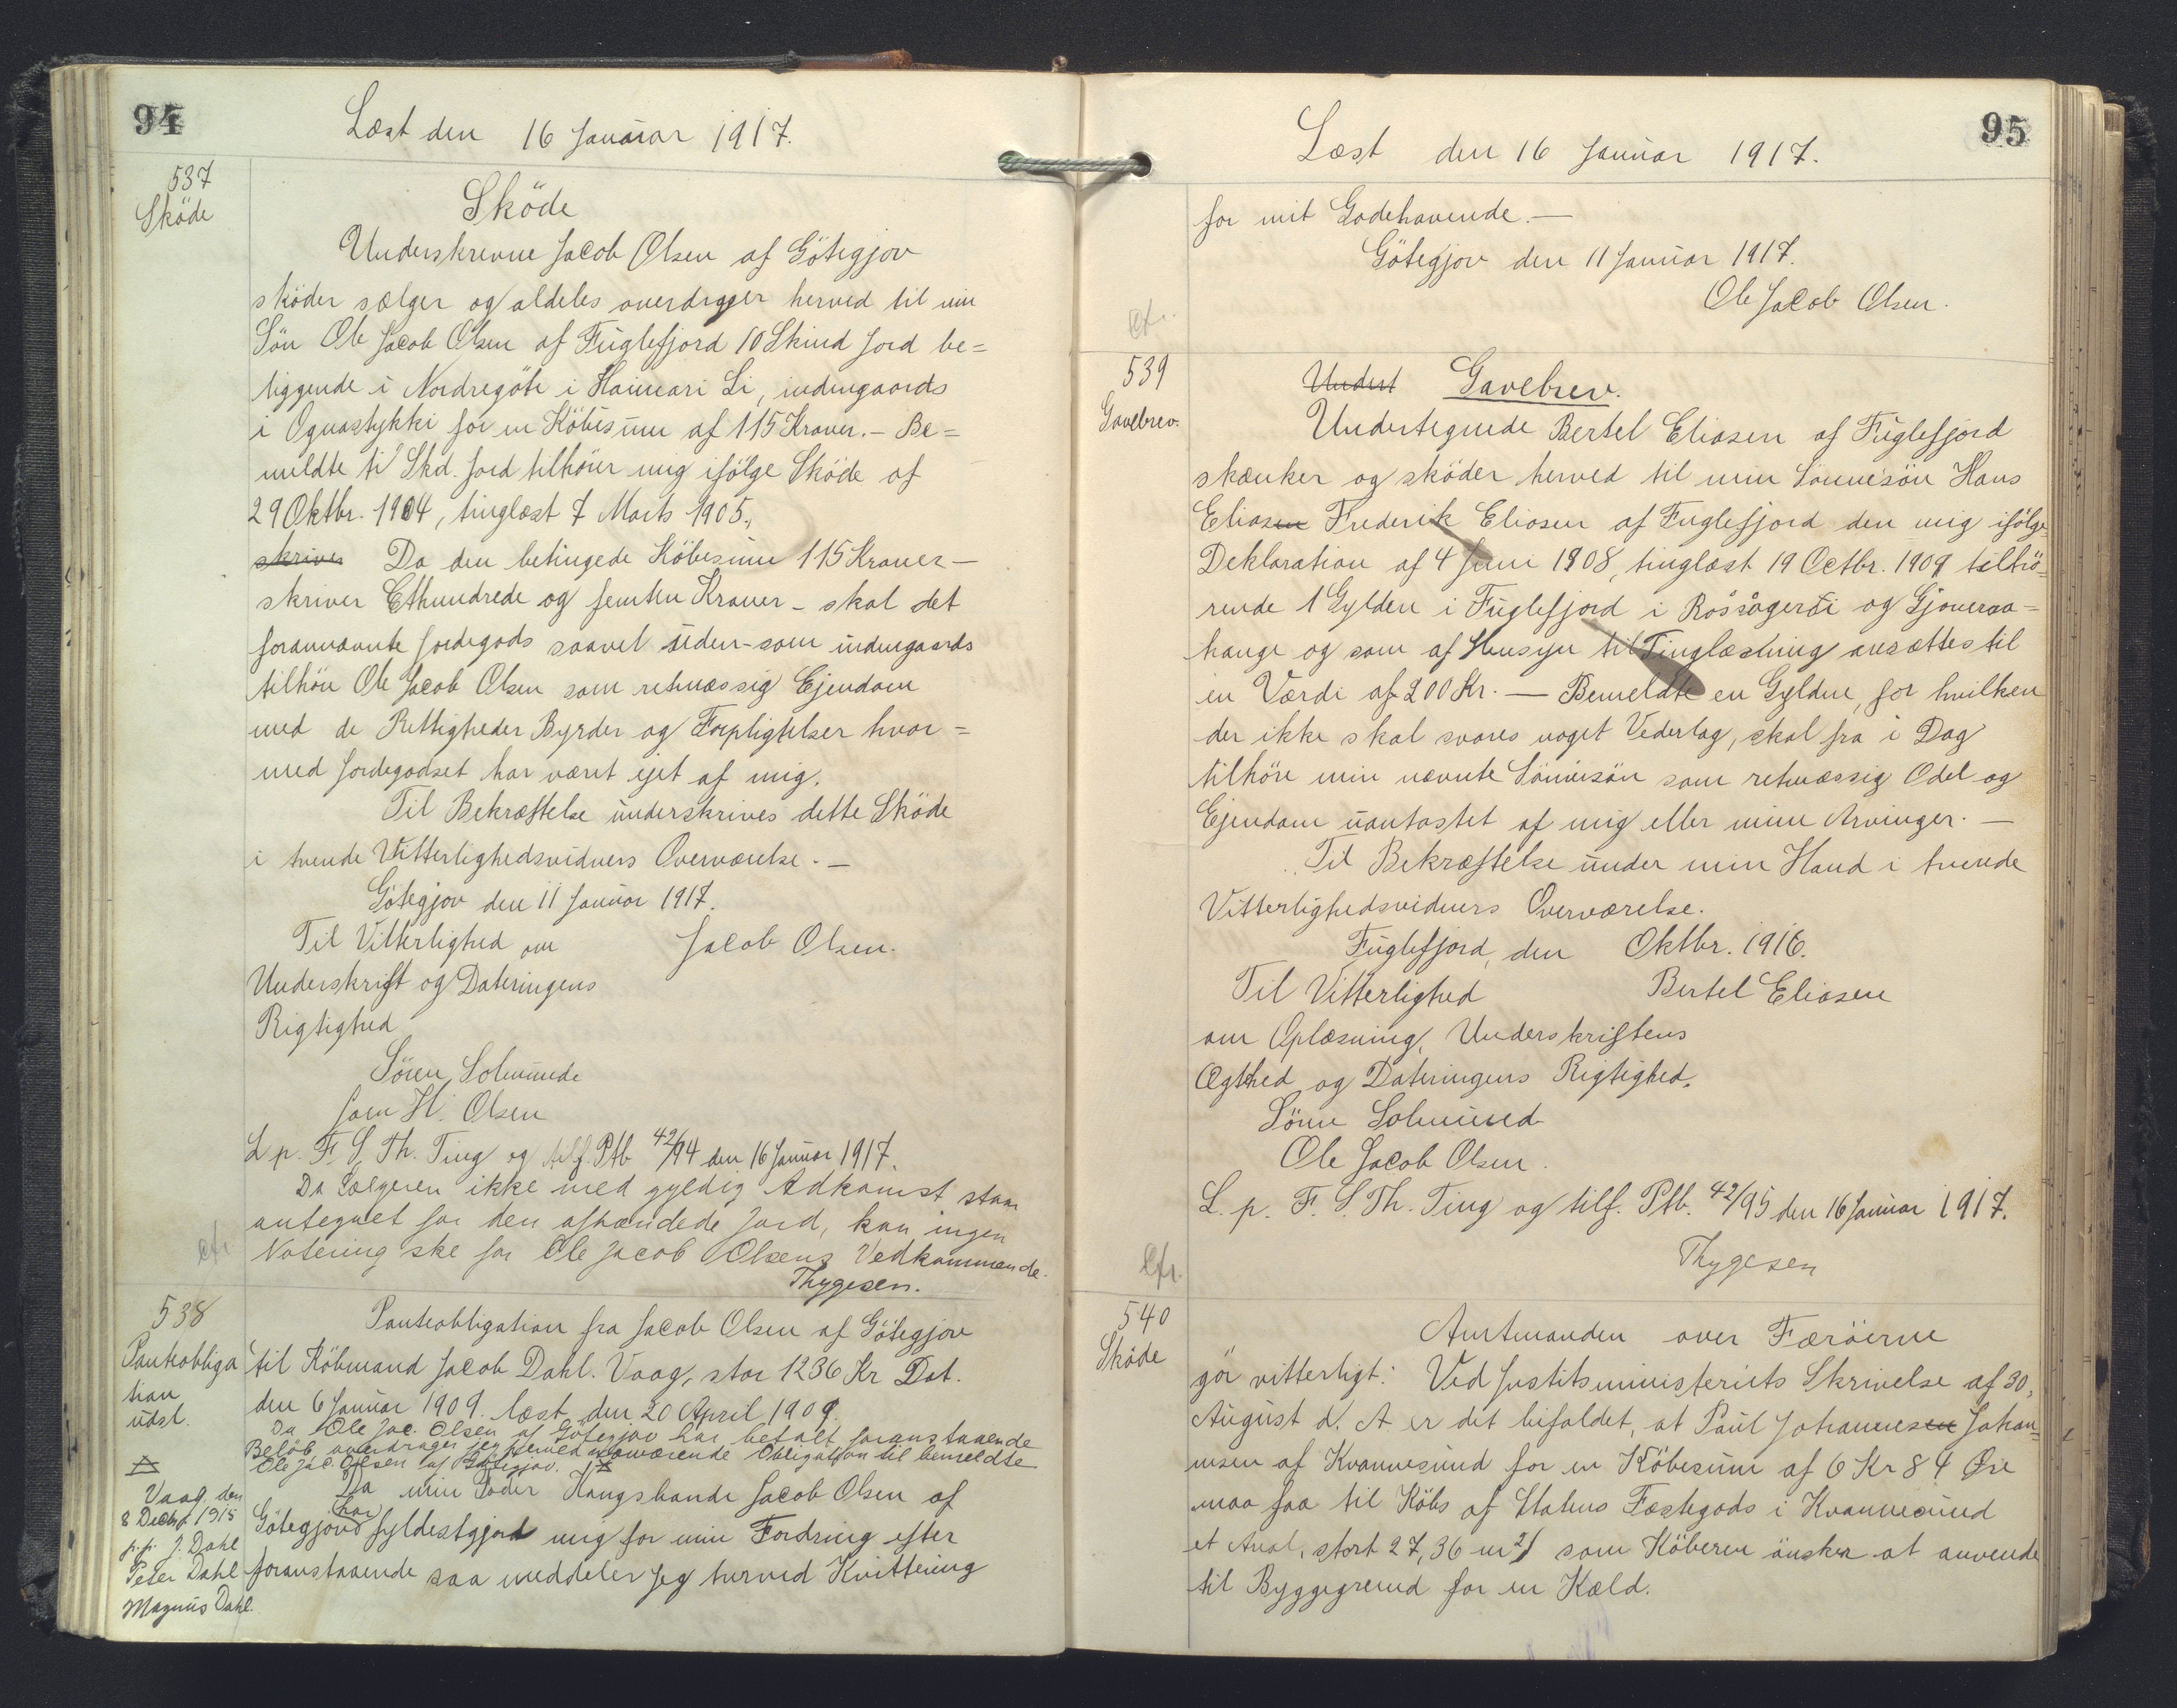 94
Læst den 16 Januar 1917.
537
Sköde
Sköde
Underskrevne Jacob Olsen af Götegjov
sköder sælger og aldeles overdrager herved til min
Sön Ole Jacob Olsen af Fuglefjord 10 Skind Jord be=
liggende i Nordregöte i Hannari Li, indengaards
i Ognastykki for en Köbesum af 115 Kroner. – Be=
meldte ti Skd. Jord tilhörer mig ifölge Sköde af
29 Oktbr. 1904, tinglæst 7 Marts 1905.
skriver Da den betingede Köbesum 115 Kroner –
skriver Ethundrede og femten Kroner – skal det
forannævnte Jordegods saavel uden- som indengaards
tilhöre Ole Jacob Olsen som retmæssig Ejendom
med de Rettigheder Byrder og Forpligtelser hvor=
med Jordegodset har været ejet af mig.
Til Bekræftelse underskrives dette Sköde
i tvende Vitterlighedsvidners Overværelse. –
Götegjov den 11 Januar 1917.
Til Vitterlighed om Jacob Olsen.
Underskrift og Dateringens
Rigtighed
Sören Solmunde
Joen H. Olsen
L. p. F. S. Th. Ting og tilf. Ptb 42/94 den 16 Januar 1917.
Da Sælgeren ikke med gyldig Adkomst staar
antegnet for den afhændede Jord, kan ingen
Notering ske for Ole Jacob Olsens Vedkommende.
cfr
Thygesen.
538
Pantobliga
tion
udsl.
Pantobligation fra Jacob Olsen af Götegjov
til Köbmand Jacob Dahl. Vaag, stor 1236 Kr Dat.
den 6 Januar 1909. læst den 20 April 1909.
Da Ole Jac. Olsen af Götegjov har betalt foranstaaende
Belöb overdrager jeg herved nærværende Obligation til bemeldte
Ole Jac. Olsen af Götegjov.
Vaag, den
8 Decbr 1915
p.p. J. Dahl
Peter Dahl
Magnus Dahl.
Da min Fader Kongsbonde Jacob Olsen af
Götegjov har fyldestgjort mig for min Fordring efter
foranstaaende saa meddeler jeg herved Kvittering
95
Læst den 16 Januar 1917.
for mit Godehavende. –
Götegjov den 11 Januar 1917.
Ole Jacob Olsen.
cfr.
539
Gavebrev.
Undert Gavebrev.
Undertegnede Bertel Eliasen af Fuglefjord
skænker og sköder herved til min Sönnesön Hans
Eliasen Frederik Eliasen af Fuglefjord den mig ifölge
Deklaration af 4 Juni 1908, tinglæst 19 Octbr. 1909 tilhö=
rende 1 Gylden i Fuglefjord i Rossagerdi og Gjoveraa=
hange og som af Hensyn til Tinglæsning ansættes til
en Værdi af 200 Kr. – Bemeldte en Gylden, for hvilken
der ikke skal svares noget Vederlag, skal fra i Dag
tilhöre min nævnte Sönnesön som retmæssig Odel og
Ejendom uantastet af mig eller mine Arvinger. –
Til Bekræftelse under min Haand i tvende
Vitterlighedsvidners Overværelse.
Fuglefjord, den Oktbr. 1916.
Til Vitterlighed Bertel Eliasen
om Oplæsning, Underskriftens
Ægthed og Dateringens Rigtighed.
Sören Solmund
Ole Jacob Olsen.
L. p. F. S. Th. Ting og tilf. Ptb. 42/95 den 16 Januar 1917.
Thygesen
Cfr.
540
Sköde
Amtmanden over Færöerne
gör vitterligt: Ved Justitsministeriets Skrivelse af 30,
August d. A er det bifaldet, at Paul Johannesen Johan=
nesen af Kvannesund for en Köbesum af 6 Kr 84 Øre
maa faa til Köbs af Statens Fæstegods i Kvannesund
et Areal, stort 27,36 m2, som Köberen önsker at anvende
til Byggegrund for en Kæld.